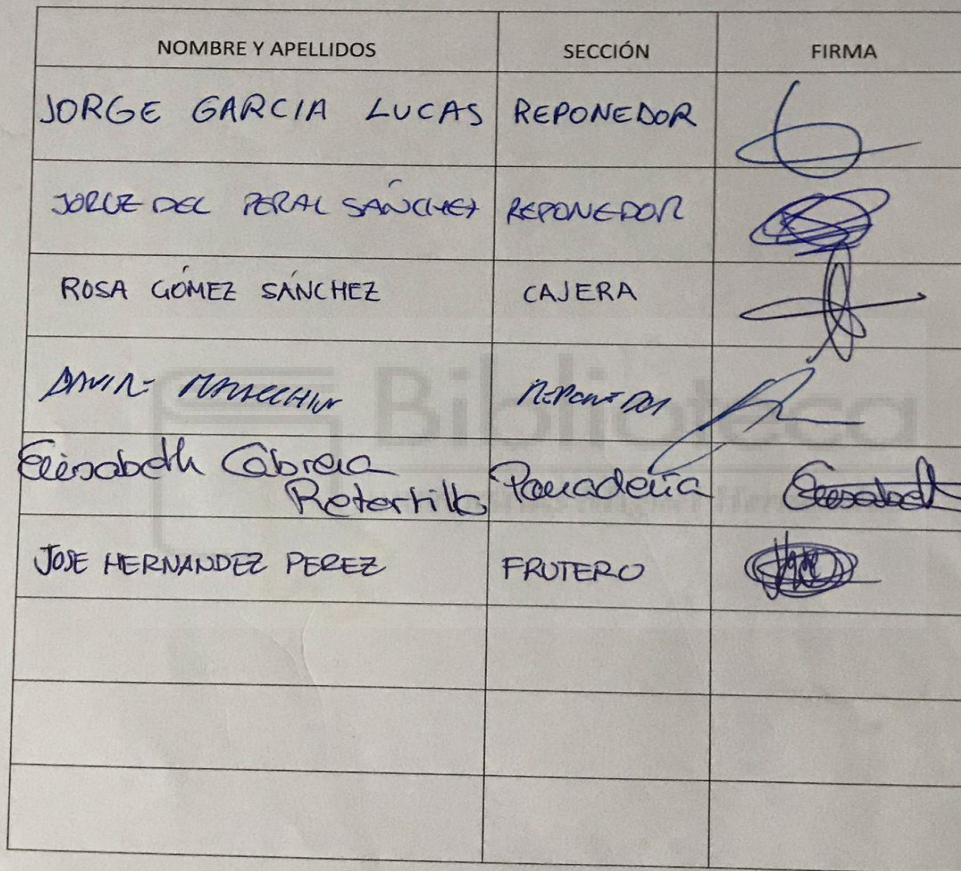 NOMBRE Y APELLIDOS SECCIÓN FIRMA
JORGE GARCIA LUCAS REPONEDOR
JORGE DEL PERAL SÁNCHEZ REPONEDOR
ROSA GÓMEZ SÁNCHEZ CAJERA
DAVID REPONEDOR
Elisabeth Cabrera
Retortillo Panadería Elisabeth
JOSE HERNANDEZ PEREZ FRUTERO
Biblioteca